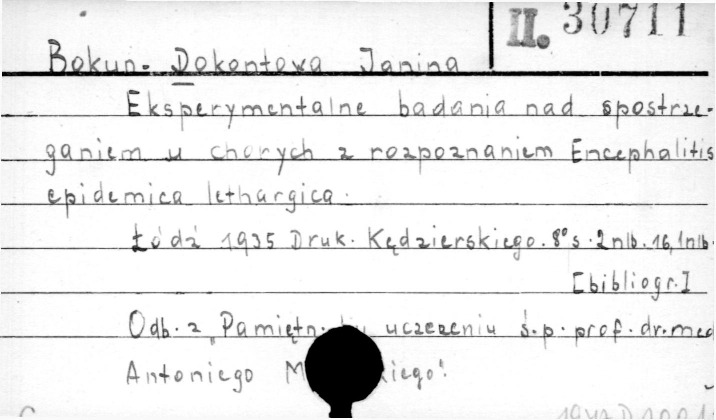 II. 30711
Bokun-Dokontowa Janina
Eksperymentalne badania nad spostrze-
ganiem u chorych z rozpoznaniem Encephalitis
epidemica lethargica.
Łódź 1935 Druk. Kędzierskiego. 8° s. 2nlb. 16, 1nlb.
[bibliogr.]
Odb. z „Pamiętn. uczczeniu ś.p. prof. dr. med
Antoniego